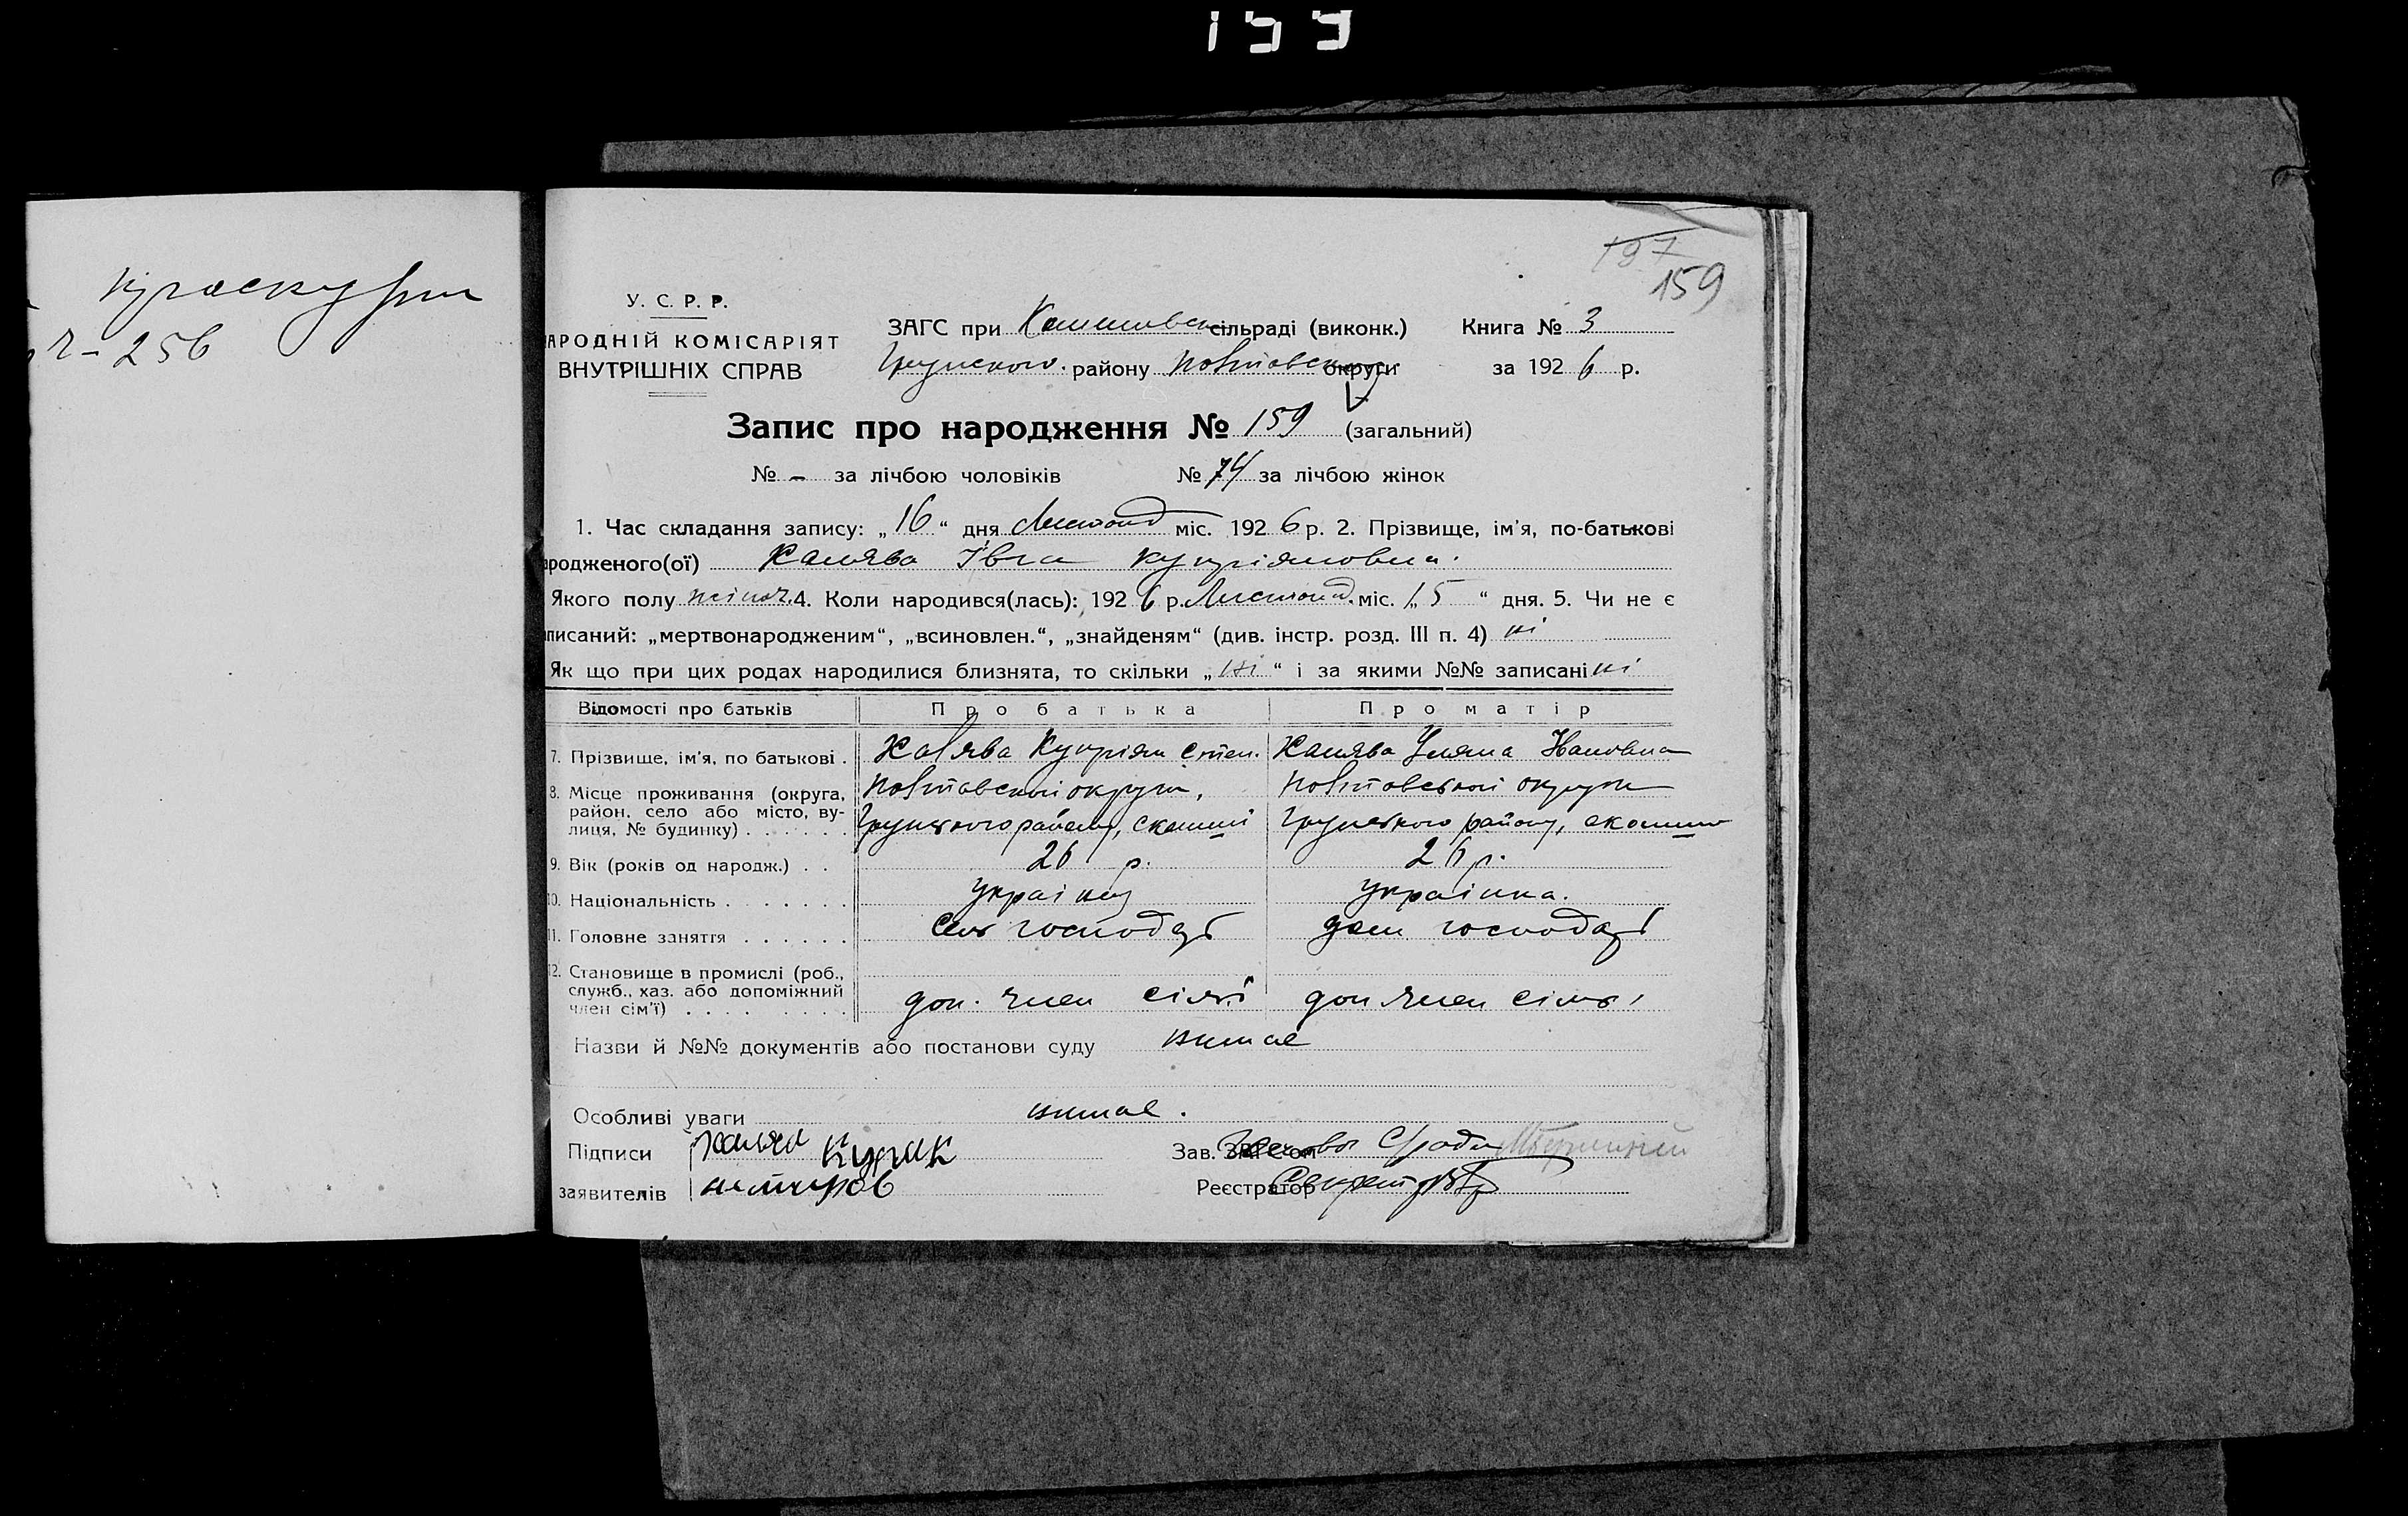 159
197
159
У. С. Р. Р.
АРОДНІЙ КОМІСАРІЯТ
ВНУТРІШНІХ СПРАВ
ЗАГС при сільраді (виконк.) Книга № 3
району Полтавської округи за 1926 р.
Запис про народження № 159 (загальний)
№ - за лічбою чоловіків № 74 за лічбою жінок
1. Час складання запису: „16“ дня Листопад міс. 1926 р. 2. Прізвище, ім'я, по-батькові
родженого(ої) Калява Івга Купріяновна.
Якого полу жіноч. 4. Коли народився(лась): 1926 р. Листопад. міс. „15“ дня. 5. Чи не є
писаний: „мертвонародженим“, „всиновлен.“, „знайденям“ (див. інстр. розд. III п. 4) ні
Як що при цих родах народилися близнята, то скільки „ні“ і за якими №№ записані ні
Відомості про батьків Про батька Про матір
7. Прізвище, ім'я, по батькові . Калява Купріян Степ. Калява Уляна Ивановна
8. Місце проживання (округа, район, село або місто, вулиця, № будинку) Полтавської округи, Полтавської округи
району, району,
9. Вік (років од народж.) . . 26 р. 26 р.
10. Національність . . . . . . . українец українка.
11. Головне заняття . . . . . . Сель господар дом. господар
12. Становище в промислі (роб., служб., хаз. або допоміжний член сім'ї) . . . . . . . . доп. член сімьї доп. член сімьї
Назви й №№ документів або постанови суду немае
Особливі уваги немае.
Підписи Зав. ЗАГС'ом Голова С/ради
заявителів Реєстратор Секретарь
256